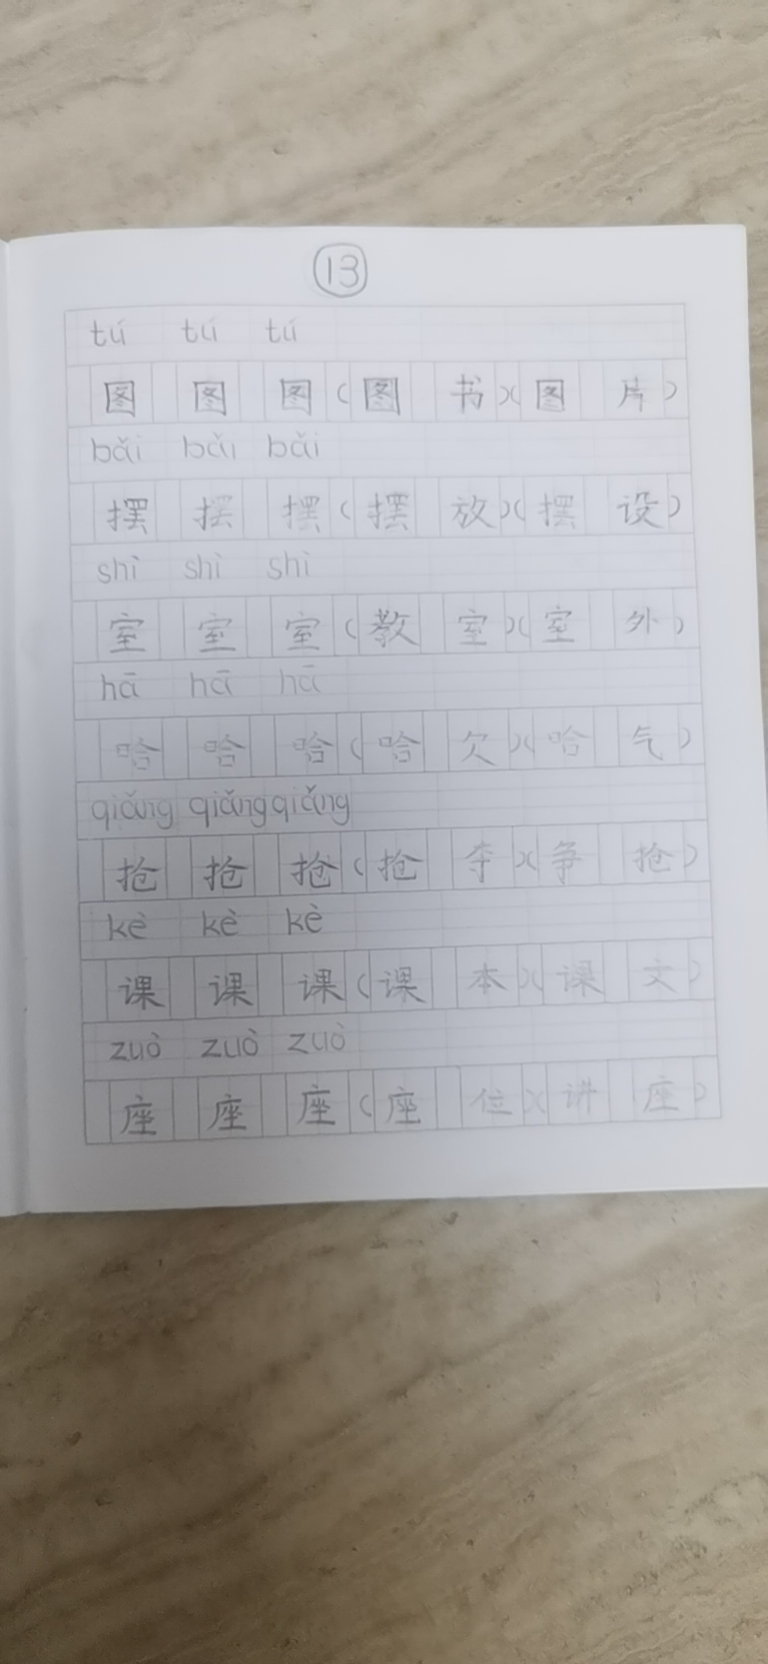 13
tú tú tú
图 图 图 (图 书)(图 片)
bǎi bǎi bǎi
摆 摆 摆 (摆 放)(摆 设)
shì shì shì
室 室 室 (教 室)(室 外)
hā hā hā
哈 哈 哈 (哈 欠)(哈 气)
qiǎng qiǎng qiǎng
抢 抢 抢 (抢 夺)(争 抢)
kè kè kè
课 课 课 (课 本)(课 文)
zuò zuò zuò
座 座 座 (座 位)(讲 座)